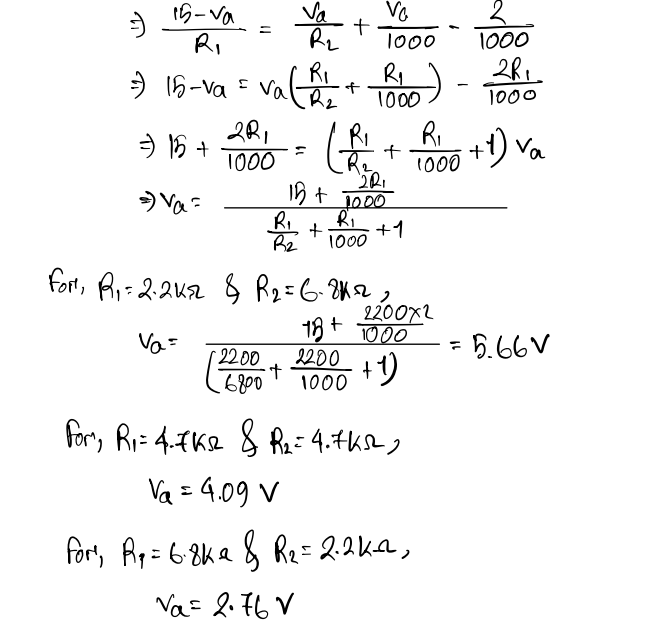 ⇒ (15-Va)/R1 = Va/R2 + Va/1000 - 2/1000
⇒ 15-Va = Va(R1/R2 + R1/1000) - 2R1/1000
⇒ 15 + 2R1/1000 = (R1/R2 + R1/1000 +1) Va
⇒ Va = (15 + 2R1/1000)/(R1/R2 + R1/1000 +1)
For, R1=2.2KΩ & R2=6.8KΩ,
Va = (15 + 2200×2/1000)/(2200/6800 + 2200/1000 +1) = 5.66V
For, R1=4.7KΩ & R2=4.7KΩ,
Va = 4.09 V
For, R1=6.8KΩ & R2=2.2KΩ,
Va = 2.76 V